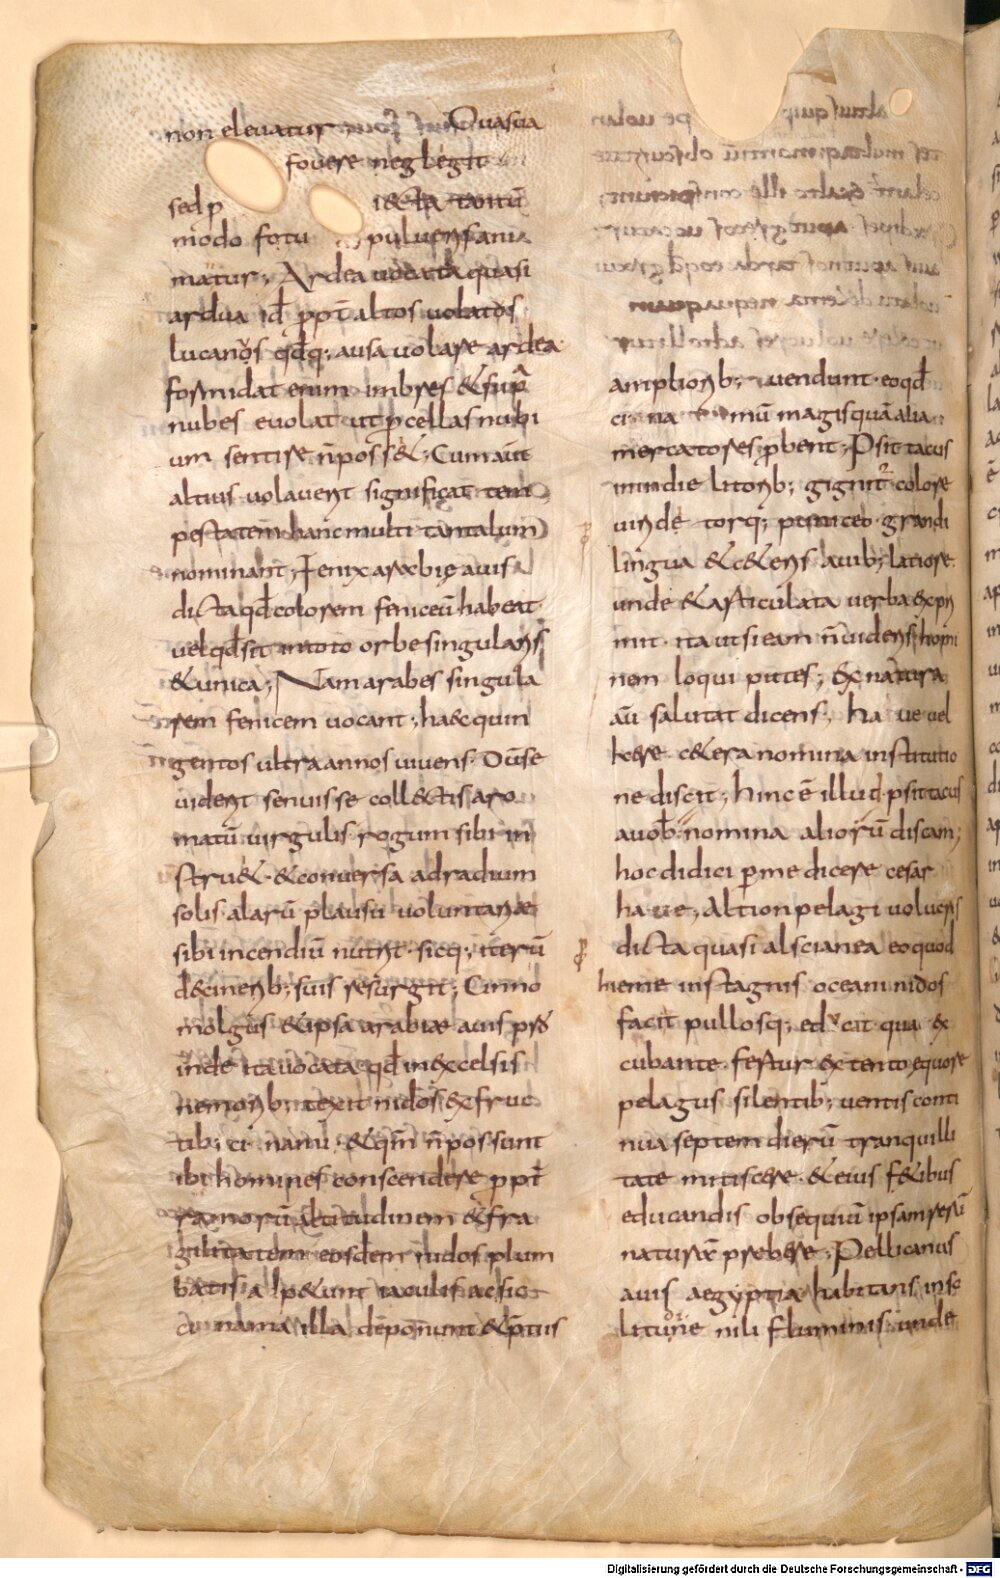 non elevatur Ova sua
fovere neglegit
sed p iecta tantū
modo fotu pulveris ani
matur; Ardea vocata quasi
ardua id ꝓpt altos volatos
lucanos qd̄q; ausa volare ardea
formidat enim imbres & sup̄
nubes evolat ut pcellas nubi
um sentire n̄ poss&; Cum aūt
altius volaverit significat tem
pestatem hanc multi tantalum
nominant; Fenix arabię avis
dicta qd̄ colorem feniceū habeat
vel qd̄ sit in toto orbe singularis
& unica; Nam arabes singula
rem fenicem vocant; haec quin
gentos ultra annos vivens. Dūse
viderit senuisse collectis aro
matū virgulis rogum sibi in
stru& & conversa ad radium
solis alarū plausu voluntariae
sibi incendiū nutrit. sicq; iterū
de cinerib; suis resurgit; Cinno
molgus & ipsa arabiae avis
inde ita vocata qd̄ in excelsis
nemorib; texit nidos ex fruc
tib; cinnami & qm̄ n̄ possunt
ibi homines conscendere ꝓpt
ramorū altitudinem & fra
gilitatem eosdem nidos plum
batis iaculis ac sic
cinnama illa deponunt &
ampliorib; vendunt eo qd̄
cinnamū magis quā alia
mercatores ꝓbent; Psittacus
indie litorib; gignit colore
viride torq; puniceo grandi
lingua & ceteris avib; latiore
unde & articulata verba expri
mit. ita ut si eam n̄ videris homi
nem loqui putes; Ex natura
aū salutat dicens; have vel
kere. cetera nomina institutio
ne discit; hinc ē illud psittacus
a vob nomina aliorū discam;
hoc didici ꝑ me dicere cesar
have; Altion pelagi volucris
dicta quasi alscianea eo quod
hieme in stagnis oceani nidos
facit pullosq; educit qua ex
cubante fertur extento equore
pelagus silentib; ventis conti
nua septem dierū tranquilli
tate mitiscere & eius fetibus
educandis obsequiū ipsam rerū
naturā prebere; Pellicanus
avis aegyptia habitans in so
litudine nili fluminis unde
Digitalisierung gefördert durch die Deutsche Forschungsgemeinschaft - DFG